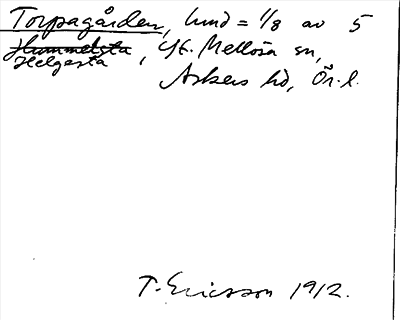 Torpagården, lund = 1/8 av 5
Hummelsta
Helgesta, St. Mellösa sn,
Askers hd, Ör. l.
T. Ericsson 1912.